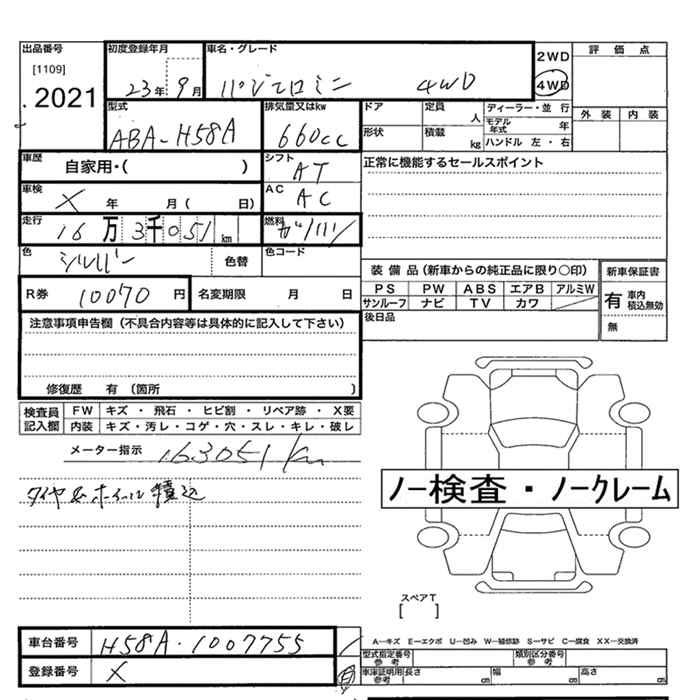 出品番号 初度登録年月 車名・グレード 評価点
[1109] 2WD
.2021 23年 9月 パジェロミニ 4WD 4WD
型式 排気量又はkw ドア 定員 人 ディーラー・並行 外装 内装
ABA-H58A 660cc 形状 積載 kg モデル年式 年
ハンドル 左・右
車歴 自家用・( ) シフト AT 正常に機能するセールスポイント
車検 X 年 月( 日) AC AC
走行 16万3千051km 燃料 ガソリン
色 シルバー 色替 色コード
装備品(新車からの純正品に限り○印) 新車保証書
R券 10070円 名変期限 月 日 PS PW ABS エアB アルミW 有 車内積込無効
サンルーフ ナビ TV カワ
後日品 無
注意事項申告欄(不具合内容等は具体的に記入して下さい)
修復歴 有 (箇所 )
検査員記入欄 FW キズ・飛石・ヒビ割・リペア跡・X要
内装 キズ・汚レ・コゲ・穴・スレ・キレ・破レ
メーター指示 163051km
タイヤ&ホイール積込
ノー検査・ノークレーム
スペアT
[ ]
車台番号 H58A-1007755
A―キズ E―エクボ U―凹み W―補修跡 S―サビ C―腐食 XX―交換済
登録番号 X 型式指定番号 参考 類別区分番号 参考
車庫証明用 参考 長さ ㎝ 幅 ㎝ 高さ ㎝